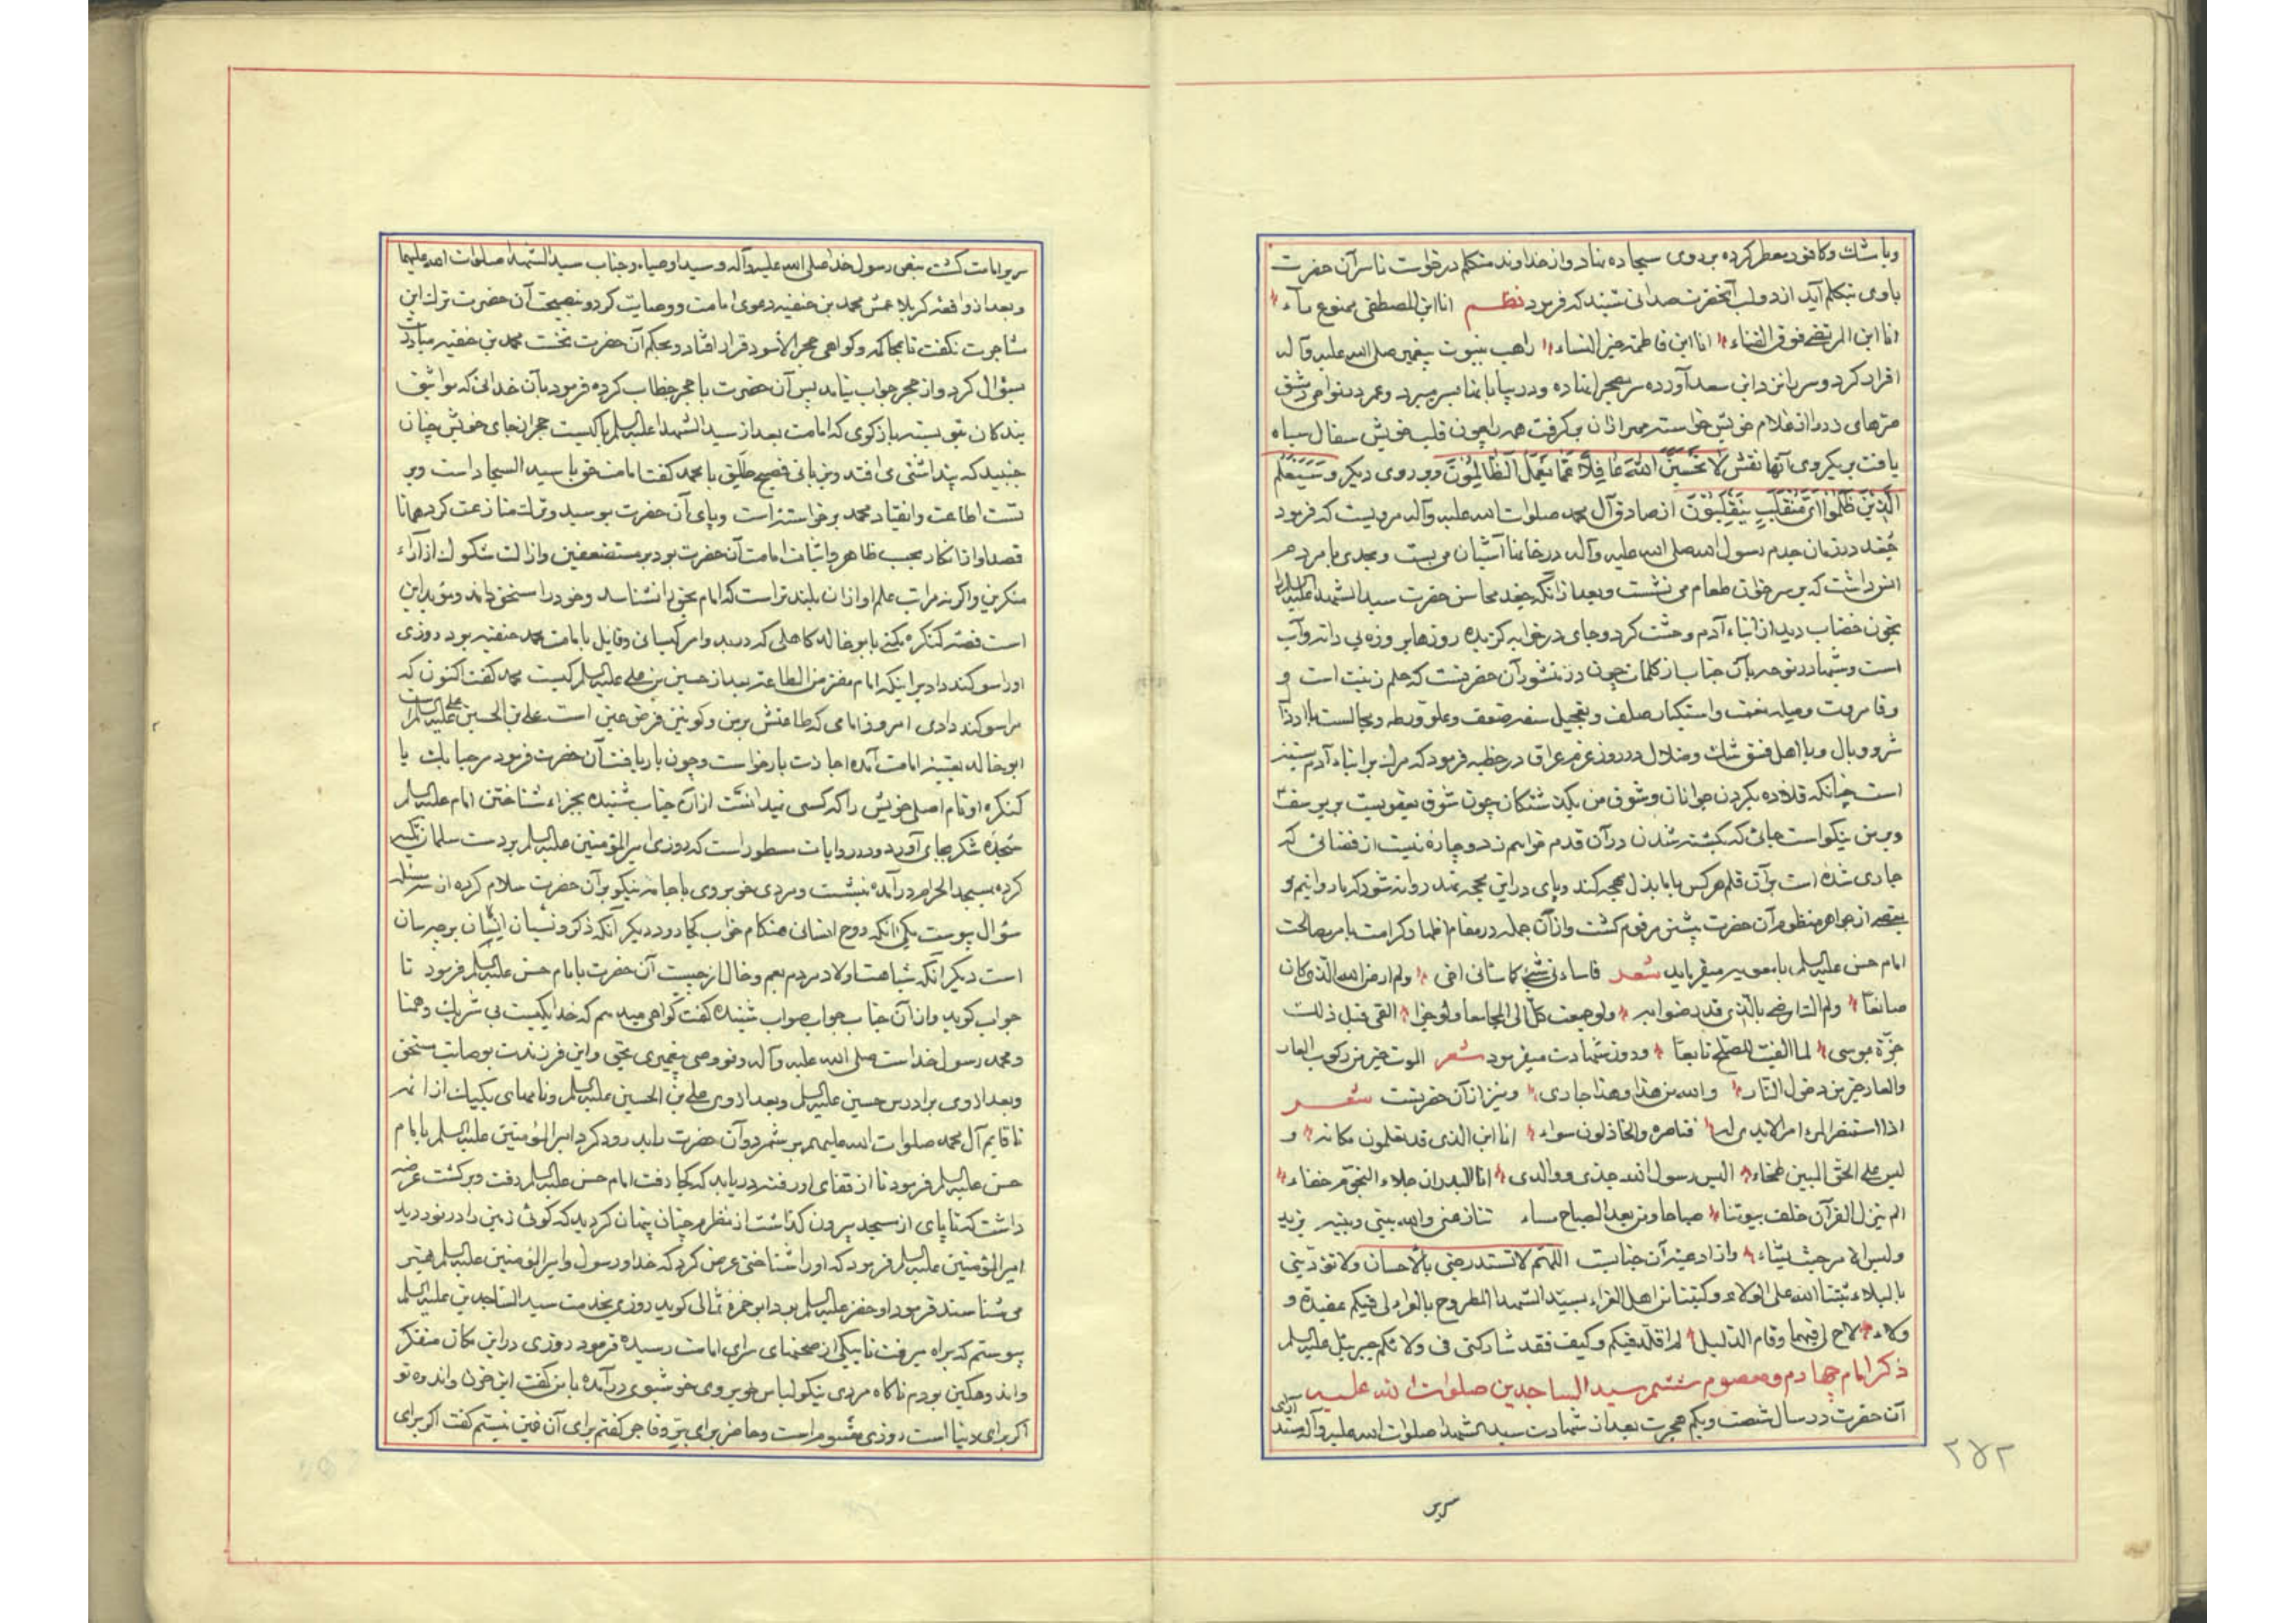 وبا شک وکافور معطر کرده بر روی سجاده بنهاد واز خداوند متکلم درخواست تا سر آن حضرت
باوی بتکلم آید از دو لب آنحضرت صدائی شنید که فرمود نظم انا ابن المصطفی
انا ابن المرتضی فوق انا ابن فاطمة خیر النساء راهب بنبوت پیغمبر صلی الله علیه وآله
اقرار کرد وسر با بن سعد آورده سر بصحرا نهاده ودر بیابانها بسر میبرد وعمر در نواحی دمشق
از غلام خویش خواسته مهر ازان برگرفت همه را چون قلب خویش سفال سیاه
یافت بر یکروی آنها نقش لا تحسبن الله غافلا عما یعمل الظالمون وبر روی دیگر وسیعلم
الذین ظلموا ای منقلب ینقلبون از صادق آل محمد صلوات الله علیه وآله مرویست که فرمود
جغد در زمان جدم رسول الله صلی الله علیه وآله در خانها آشیان می بست وبحدی با مردم
انس داشت که بر سر خوان طعام می نشست وبعد از آنکه جغد محاسن حضرت سید الشهدا علیه السلم را
بخون خضاب دید از ابناء آدم وحشت کرد وجای در خرابه گزیده روزها بر وزه بی دانه وآب
است وشبها در نوحه بآن جناب از کلمات چون در منثور آن حضرتست که حلم زینت است و
وفا مروت وصله نعمت واستکبار صلف وتعجیل سفه وسفه ضعف وغلو ورطه ومجالست با
شر ووبال وبا اهل فسق شک وضلال در روز عزم عراق در خطبه فرمود که مرک بر ابناء آدم
است چنانکه قلاده بگردن جوانان وشوق من بگذشتگان چون شوق یعقوبست بر یوسف
وبر من نیکو است جائی که بکشته شدن در آن قدم خواهم زد وچاره نیست از قضائی که
جاری شده است بر آن قلم هر کس با ما بذل مهجه کند وپای در این
از جواهر منظوم آن حضرت پیش مرقوم گشت واز آن جمله در مقام اظهار کرامت بامر مصالحت
امام حسن علیه السلم با معویه میفرماید شعر فما ساءنی شیء کما ساءنی اخی ولم ارض لله الذی کان
صانعا ولم ارضی بالذی قد رضوا به ولو جمعت کل الی المجامعا ولو حز انفی قبل ذلک
حزة بموسی لما الفیت للصلح تابعا ودر روز شهادت میفرمود شعر الموت خیر من رکوب العار
والعار خیر من دخول النار والله من هذا وهذا جاری ونیز از آن حضرتست شعر
اذا استنصر المرء امرا لا یدی له فناصره والخاذلون سواء انا ابن الذی قد تعلمون مکانه و
لیس علی الحق المبین طخاء الیس رسول الله جدی ووالدی انا البدر ان خلا النجوم خفاء
الم ینزل القرآن خلف بیوتنا صباحا ومن بعد الصباح مساء تنازعنی والله بینی وبینه یزید
ولیس الامر حیث یشاء واز ادعیه آن جنابست اللهم لا تستدرجنی بالاحسان ولا تؤدبنی
بالبلاء ثبتنا الله علی الولاء وکتبنا من اهل العزاء بسید الشهدا المطروح بالعراء لی فیکم عقیدة و
ولاء لاح لی فیها وقام الدلیل لم اقلد فیکم وکیف فقد شارکنی فی ولائکم جبرئیل علیه السلم
ذکر امام چهارم ومعصوم ششم سید الساجدین صلوات الله علیه
آن حضرت در سال شصت ویکم هجرت بعد از شهادت سید الشهدا صلوات الله علیه وآله مسند آرای
سریر
۲۷۲
سریر امامت گشت بنص رسول خدا صلی الله علیه وآله وسید اوصیاء وجناب سید الشهدا صلوات الله علیهما
وبعد از واقعه کربلا عمش محمد بن حنفیه دعوی امامت ووصایت کرد وبنصیحت آن حضرت ترک این
مشاجرت نگفت تا بمحاکمه وگواهی حجر الاسود قرار افتاد وبحکم آن حضرت نخست محمد بن حنفیه مبادرت
بسؤال کرد واز حجر جواب نیامد پس آن حضرت با حجر خطاب کرده فرمود بآن خدائی که مواثیق
بندگان بتو بسته بازگوی که امامت بعد از سید الشهدا علیه السلم با کیست حجر از جای خویش چنان
جنبید که پنداشتی می افتد وبزبانی فصیح طلیق با محمد گفت امامت حق با سید السجاد است وبر
تست اطاعت وانقیاد محمد برخواستند است وپای آن حضرت ببوسید وترک منازعت کرد همانا
قصد او از انکار بحسب ظاهر واثبات امامت آن حضرت بود بر مستضعفین وازالت شکوک از آراء
منکرین واگر نه مراتب علم او از ان بلند تر است که امام بحق را نشناسد وخود را مستحق داند ومؤید این
است قصه کنکر مکنی بابو خالد کابلی که در بدو امر کیسانی وقایل بامامت محمد حنفیه بود روزی
او را سوگند داد بر اینکه امام مفترض الطاعة بعد از حسین بن علی علیه السلم کیست محمد گفت اکنون که
مرا سوگند دادی امروز امامی که طاعتش بر من وکونین فرض عین است علی بن الحسین علیه السلم است
ابو خالد بعتبه امامت آمده اجازت بار خواست وچون بار یافت آن حضرت فرمود مرحبا بک یا
کنکر او نام اصلی خویش را که کسی نمیدانست از آن جناب شنیده بجزاء شناختن امام علیه السلم
سجده شکر بجای آورد ودر روایات مسطور است که روزی امیر المؤمنین علیه السلم بر دست سلمان تکیه
کرده بمسجد الحرام در آمده بنشست ومردی خوبروی با جامه نیکو بر آن حضرت سلام کرده از سه مسئله
سؤال پیوست یکی انکه روح انسانی هنگام خواب کجا رود دیگر آنکه ذکر ونسیان انسان بر چه سان
است دیگر آنکه شباهت اولاد مردم بعم وخال از چیست آن حضرت با امام حسن علیه السلم فرمود تا
جواب گوید واز آن جناب جواب صواب شنیده گفت گواهی میدهم که خدا یکیست بی شریک وهمتا
ومحمد رسول خداست صلی الله علیه وآله وتو وصی پیغمبری بحق واین فرزندت بوصایت مستحق
وبعد از وی برادرش حسین علیه السلم وبعد از وی علی بن الحسین علیه السلم ونامهای یکیک از ائمه
تا قایم آل محمد صلوات الله علیهم بر شمرد وآن حضرت را بدرود کرد امیر المؤمنین علیه السلم با امام
حسن علیه السلم فرمود تا از قفای او رفته در یابد که کجا رفت امام حسن علیه السلم رفت وبرگشت عرضه
داشت که تا پای از مسجد بیرون گذاشت از نظرم چنان پنهان گردید که گوئی زمین را در نوردید
امیر المؤمنین علیه السلم فرمود که او را شناختی عرض کرد که خدا ورسول وامیر المؤمنین علیه السلم بهتر
می شناسند فرمود او خضر علیه السلم بود ابو حمزه ثمالی گوید روزی بخدمت سید الساجدین علیه السلم
پیوستم که براه میرفت تا بیکی از صحنهای سرای امامت رسیده فرمود روزی در این مکان متفکر
واندوهگین بودم ناگاه مردی نیکو لباس خوبروی خوشبوی در آمده با من گفت این حزن واندوه تو
اگر برای دنیا است روزی مقسوم است وحاضر برای بر وفاجر گفتم برای آن غمین نیستم گفت اگر برای